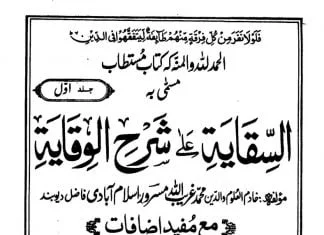 فلولا نفر من كل فرقة منهم طائفة ليتفقهوا فى الدين
الحمد لله والمنہ کہ کتاب مستطاب
مسمّٰی بہ
جلد اوّل
السقاية على شرح الوقاية
مؤلفہ: خادم العلوم والدین محمد غریب اللہ مسرور اسلام آبادی فاضل دیوبند
مع مفید اضافات